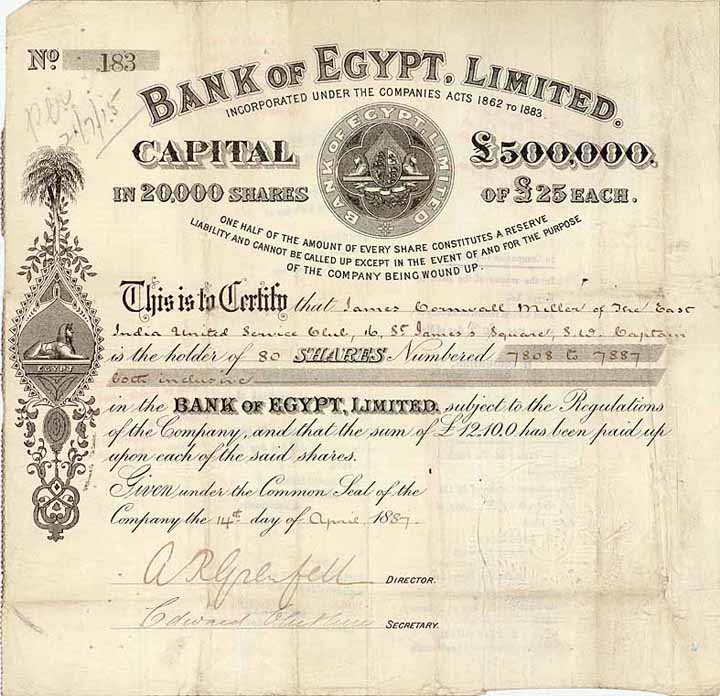 No. 183
per
21/7/15
BANK OF EGYPT, LIMITED.
INCORPORATED UNDER THE COMPANIES ACTS 1862 TO 1883.
BANK OF EGYPT, LIMITED
CAPITAL £500,000,
IN 20,000 SHARES OF £25 EACH.
ONE HALF OF THE AMOUNT OF EVERY SHARE CONSTITUTES A RESERVE
LIABILITY AND CANNOT BE CALLED UP EXCEPT IN THE EVENT OF AND FOR THE PURPOSE
OF THE COMPANY BEING WOUND UP.
This is to Certify that James Cornwall Miller of The East
India United Service Club, 16, St James's Square, S.W. Captain
is the holder of 80 SHARES Numbered 7808 to 7887
both inclusive
in the BANK OF EGYPT, LIMITED, subject to the Regulations
of the Company, and that the sum of £12.10.0 has been paid up
upon each of the said shares.
Given under the Common Seal of the
Company the 14th day of April 1887.
A R Grenfell DIRECTOR.
Edward SECRETARY.
EGYPT